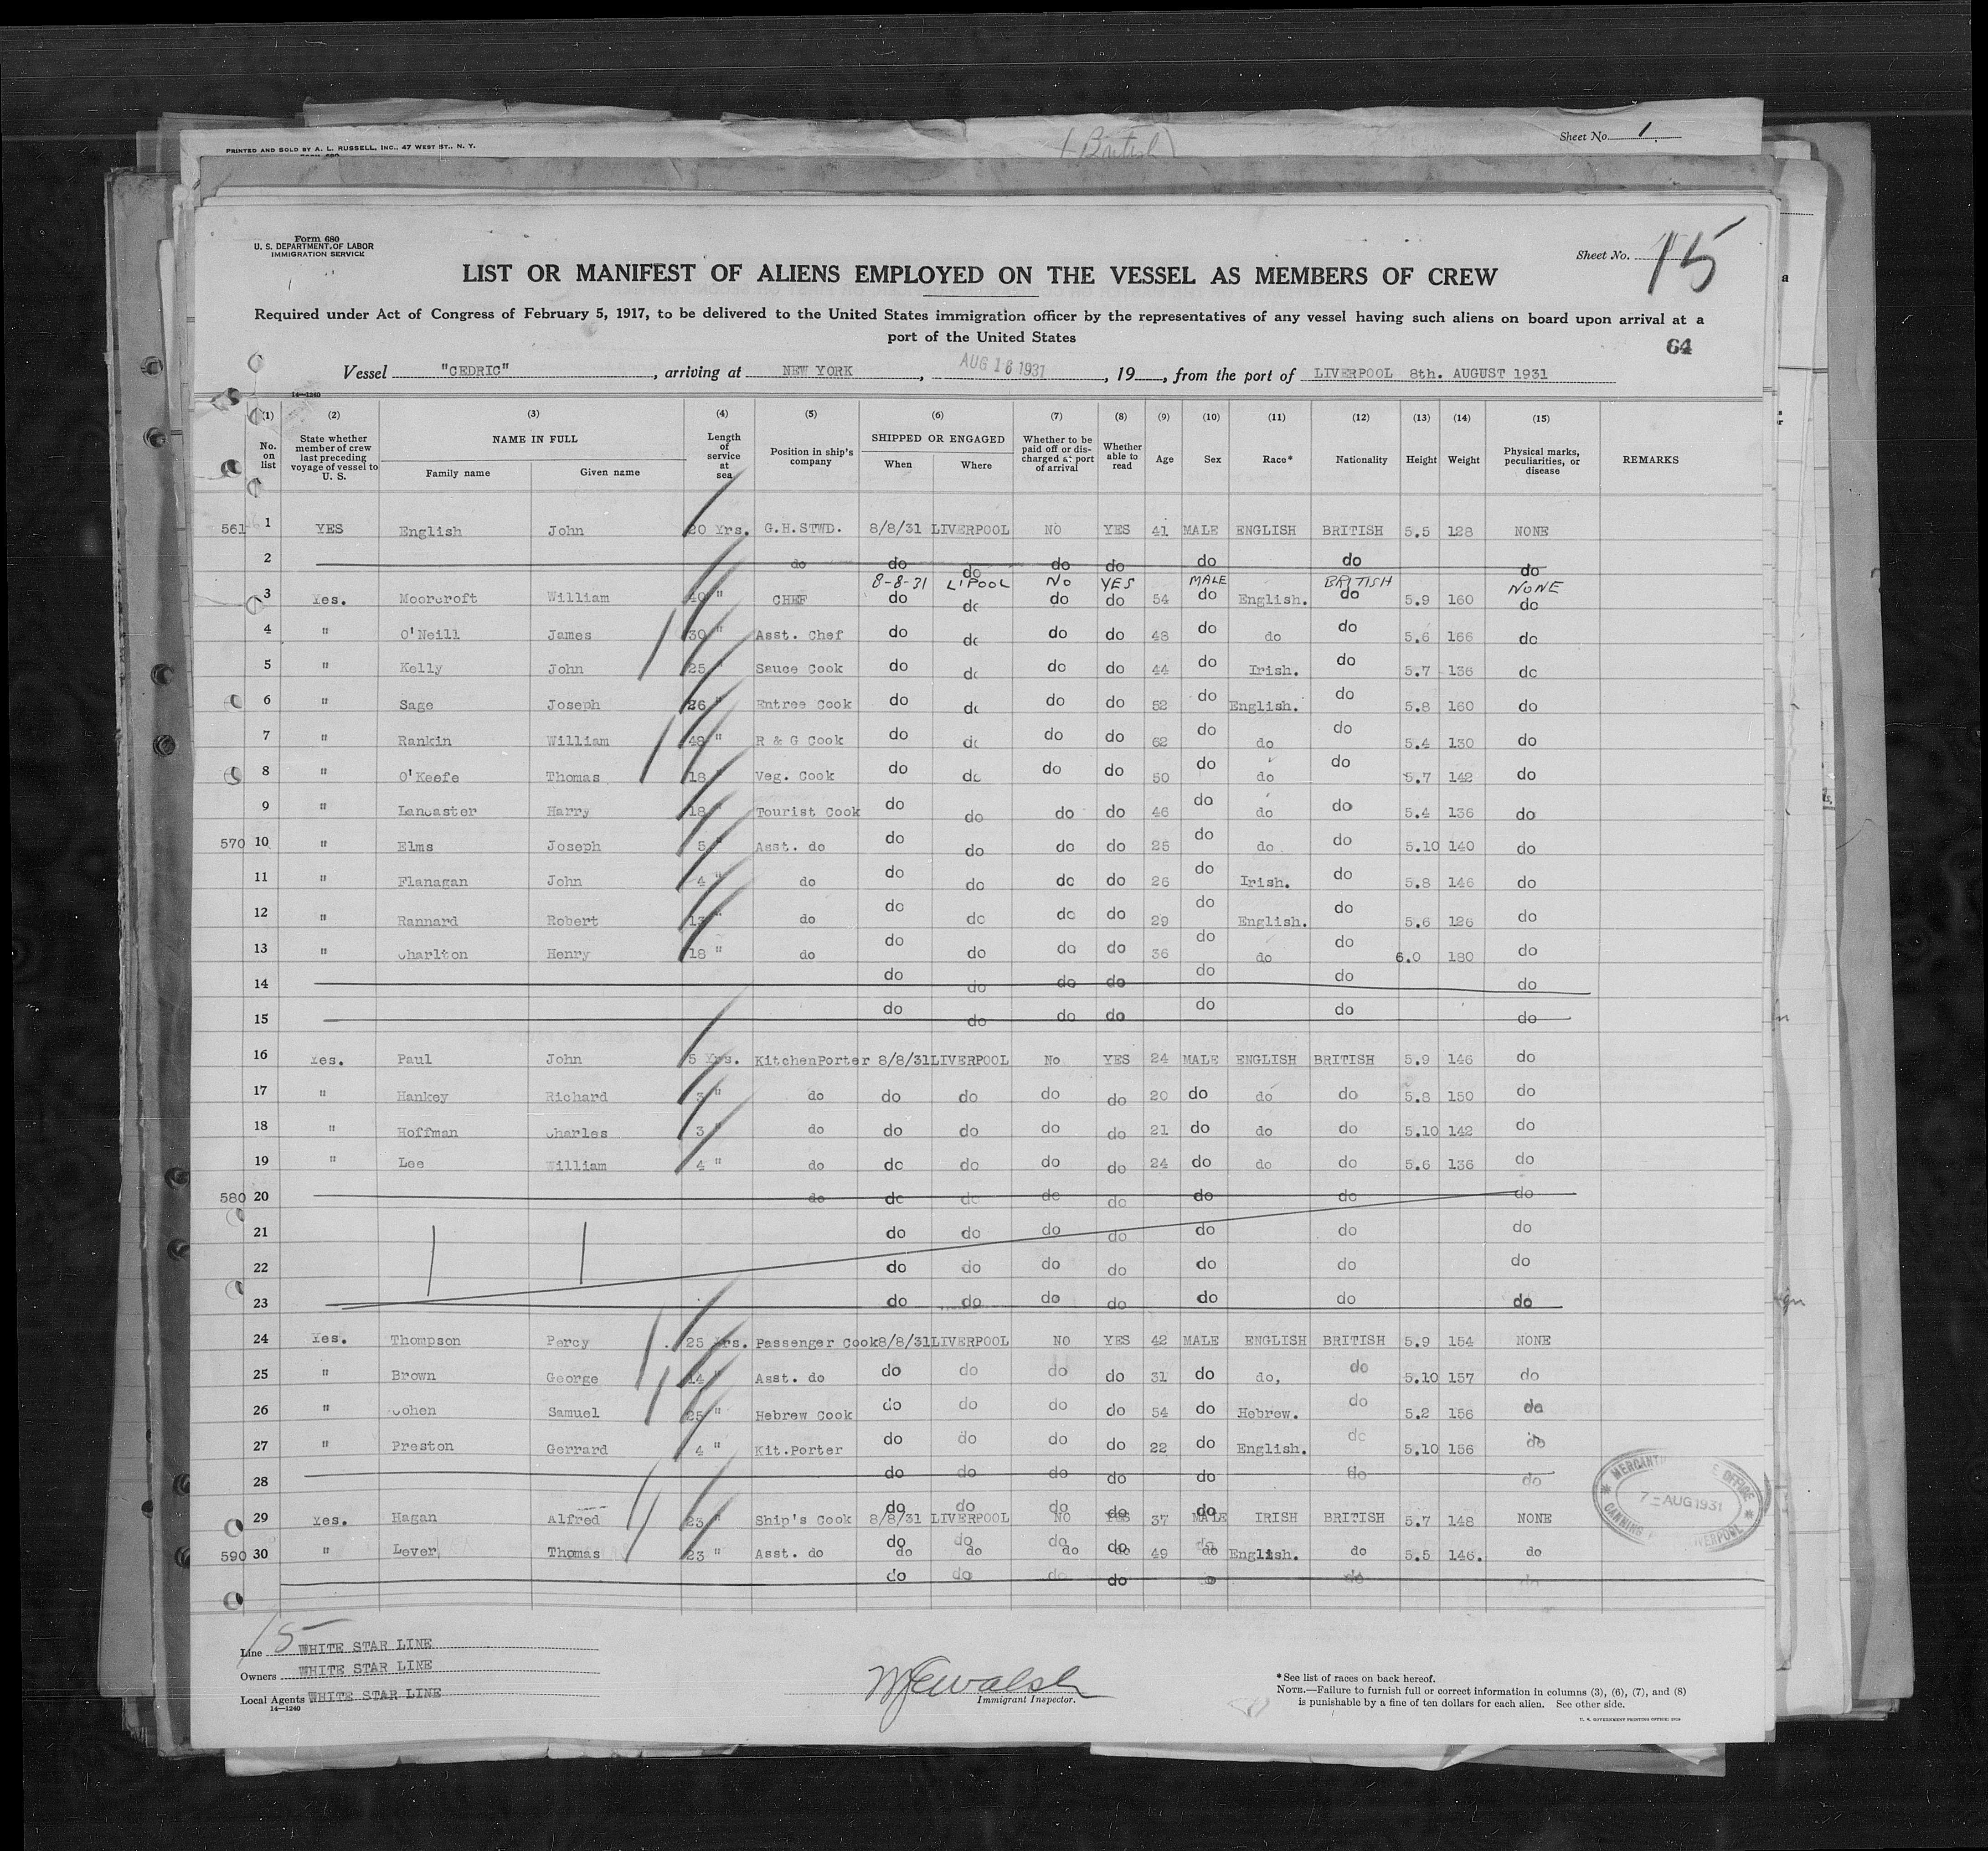 PRINTED AND SOLD BY A. L. RUSSELL, INC., 47 WEST ST., N. Y.
(British)
Sheet No. 1
Form 680
U. S. DEPARTMENT OF LABOR
IMMIGRATION SERVICE
Sheet No. 15
LIST OR MANIFEST OF ALIENS EMPLOYED ON THE VESSEL AS MEMBERS OF CREW
Required under Act of Congress of February 5, 1917, to be delivered to the United States immigration officer by the representatives of any vessel having such aliens on board upon arrival at a
port of the United States
64
Vessel "CEDRIC", arriving at NEW YORK, AUG 16 1931, 19, from the port of LIVERPOOL 8th. AUGUST 1931
14—1240
(1) (2) (3) (4) (5) (6) (7) (8) (9) (10) (11) (12) (13) (14) (15)
No. on list State whether member of crew last preceding voyage of vessel to U. S. NAME IN FULL Family name Given name Length of service at sea Position in ship's company SHIPPED OR ENGAGED When Where Whether to be paid off or discharged at port of arrival Whether able to read Age Sex Race* Nationality Height Weight Physical marks, peculiarities, or disease REMARKS
561 1 YES English John 20 Yrs. G.H.STWD. 8/8/31 LIVERPOOL NO YES 41 MALE ENGLISH BRITISH 5.5 128 NONE
2 do do do do do do do do
8-8-31 L'POOL NO YES MALE BRITISH NONE
3 Yes. Moorcroft William 40 " CHEF do do do do 54 do English. do 5.9 160 do
4 " O'Neill James 30 " Asst. Chef do do do do 48 do do do 5.6 166 do
5 " Kelly John 25 " Sauce Cook do do do do 44 do Irish. do 5.7 136 do
6 " Sage Joseph 26 " Entree Cook do do do do 52 do English. do 5.8 160 do
7 " Rankin William 49 " R & G Cook do do do do 62 do do do 5.4 130 do
8 " O'Keefe Thomas 18 " Veg. Cook do do do do 50 do do do 5.7 142 do
9 " Lancaster Harry 18 " Tourist Cook do do do do 46 do do do 5.4 136 do
570 10 " Elms Joseph 5 " Asst. do do do do do 25 do do do 5.10 140 do
11 " Flanagan John 4 " do do do do do 26 do Irish. do 5.8 146 do
12 " Rannard Robert 13 " do do do do do 29 do English. do 5.6 126 do
13 " Charlton Henry 18 " do do do do do 36 do do do 6.0 180 do
14 do do do do do do do
15 do do do do do do do
16 Yes. Paul John 5 Yrs. KitchenPorter 8/8/31 LIVERPOOL No YES 24 MALE ENGLISH BRITISH 5.9 146 do
17 " Hankey Richard 3 " do do do do do 20 do do do 5.8 150 do
18 " Hoffman Charles 3 " do do do do do 21 do do do 5.10 142 do
19 " Lee William 4 " do do do do do 24 do do do 5.6 136 do
580 20 do do do do do do do do
21 do do do do do do do
22 do do do do do do do
23 do do do do do do do
24 Yes. Thompson Percy 25 Yrs. Passenger Cook 8/8/31 LIVERPOOL NO YES 42 MALE ENGLISH BRITISH 5.9 154 NONE
25 " Brown George 14 " Asst. do do do do do 31 do do, do 5.10 157 do
26 " Cohen Samuel 25 " Hebrew Cook do do do do 54 do Hebrew. do 5.2 156 do
27 " Preston Gerrard 4 " Kit.Porter do do do do 22 do English. do 5.10 156 do
28 do do do do do do do
do do do do do
29 Yes. Hagan Alfred 23 " Ship's Cook 8/8/31 LIVERPOOL NO YES 37 MALE IRISH BRITISH 5.7 148 NONE
do do do do do
590 30 " Lever Thomas 23 " Asst. do do do do do 49 do English. do 5.5 146. do
do do do do do do do
MERCANTILE OFFICE
7 - AUG 1931
CANNING LIVERPOOL
15
Line WHITE STAR LINE
Owners WHITE STAR LINE
Local Agents WHITE STAR LINE
14—1240
Immigrant Inspector.
*See list of races on back hereof.
NOTE.—Failure to furnish full or correct information in columns (3), (6), (7), and (8)
is punishable by a fine of ten dollars for each alien. See other side.
U. S. GOVERNMENT PRINTING OFFICE: